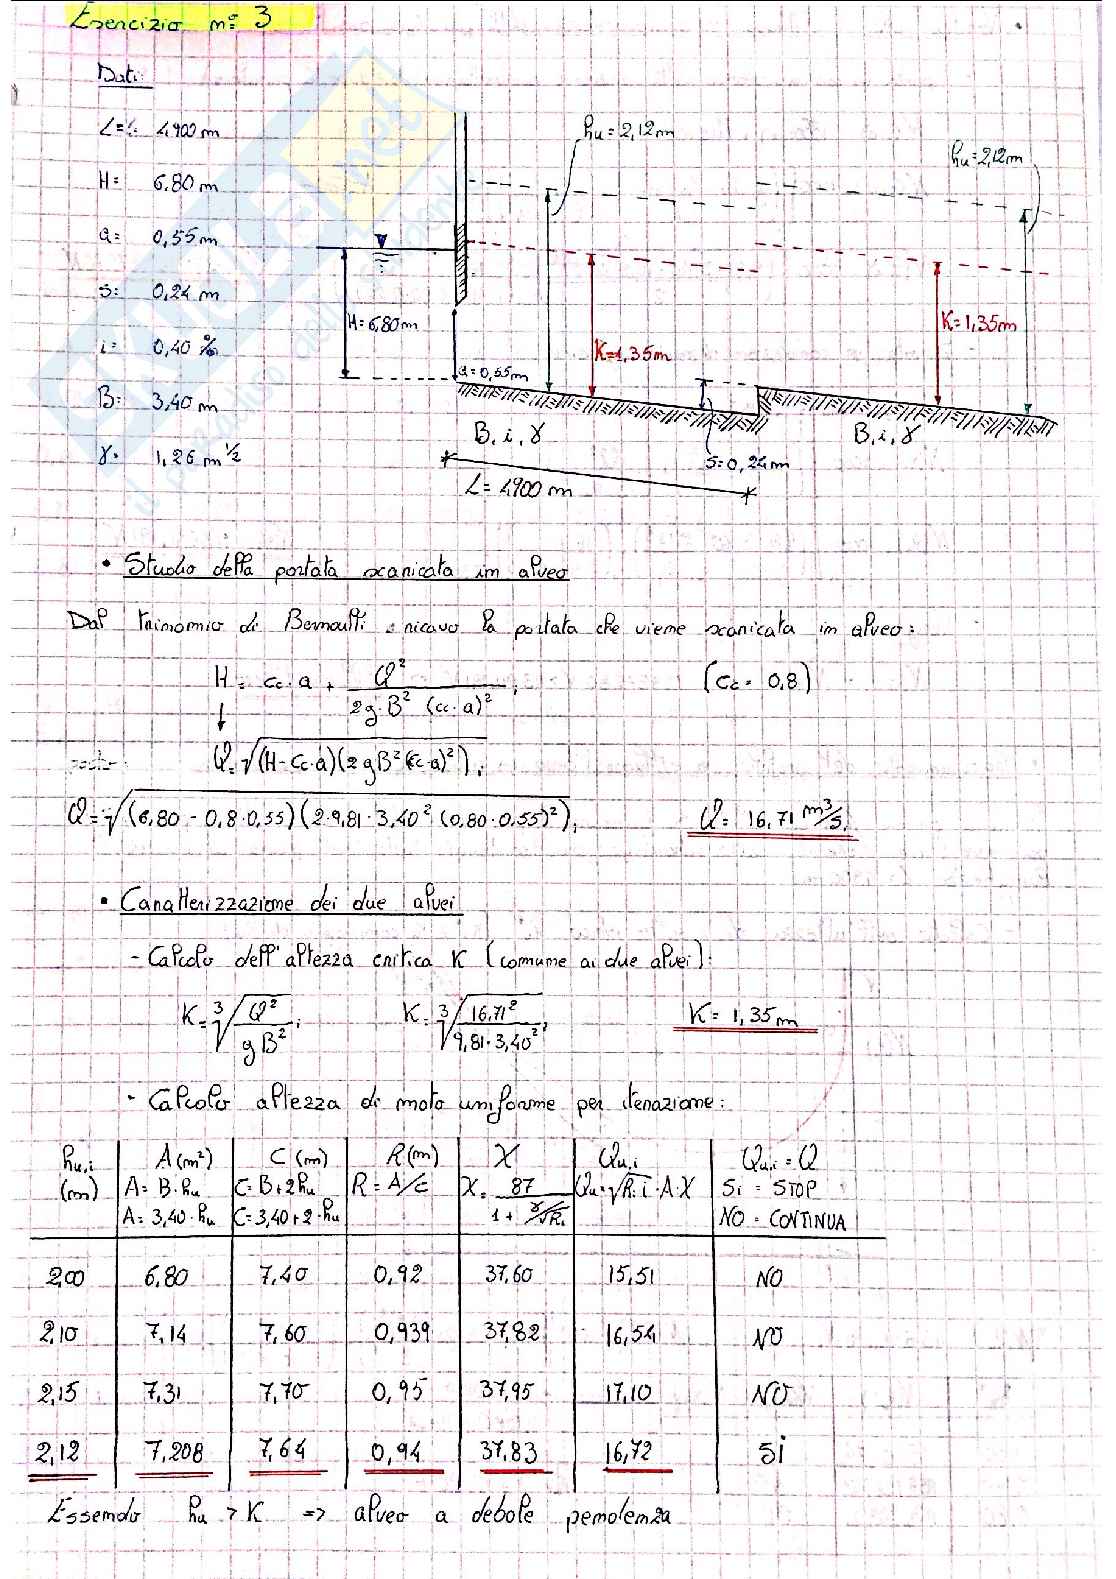 Esercizio n° 3
Dati:
L= 4900 m
H= 6.80 m
a= 0,55 m
s= 0,24 m
i= 0,40 ‰
B= 3,40 m
γ= 1,26 m^1/2
hu = 2,12 m
hu = 2,12 m
H = 6,80 m
a = 0,55 m
K=1,35m
K=1,35m
B, i, γ
B, i, γ
S=0,24m
L= 4900 m
• Studio della portata scaricata in alveo
Dal trinomio di Bernoulli ricavo la portata che viene scaricata in alveo:
H = cc·a + Q² / 2g·B² (cc·a)² ; (cc = 0,8)
↓
Q=√(H-Cc·a)(2gB²(Cc·a)²) ;
Q=√(6,80 - 0,8·0,55)(2·9,81·3,40²(0,80·0,55)²) ; Q= 16,71 m³/s.
• Caratterizzazione dei due alvei
- Calcolo dell'altezza critica K (comune ai due alvei):
K=∛Q²/gB² ; K=∛16,71²/9,81·3,40² ; K= 1,35m
- Calcolo altezza di moto uniforme per iterazione:
hu,i A(m²) C(m) R(m) X Qu,i Qu,i = Q
(m) A= B·hu C=B+2hu R=A/C X= 87 / 1+γ/√R Qu=√R·i·A·X SI = STOP
A= 3,40·hu C=3,40+2·hu NO = CONTINUA
2,00 6,80 7,40 0,92 37,60 15,51 NO
2,10 7,14 7,60 0,939 37,82 16,54 NO
2,15 7,31 7,70 0,95 37,95 17,10 NO
2,12 7,208 7,64 0,94 37,83 16,72 SI
Essendo hu > K => alveo a debole pendenza